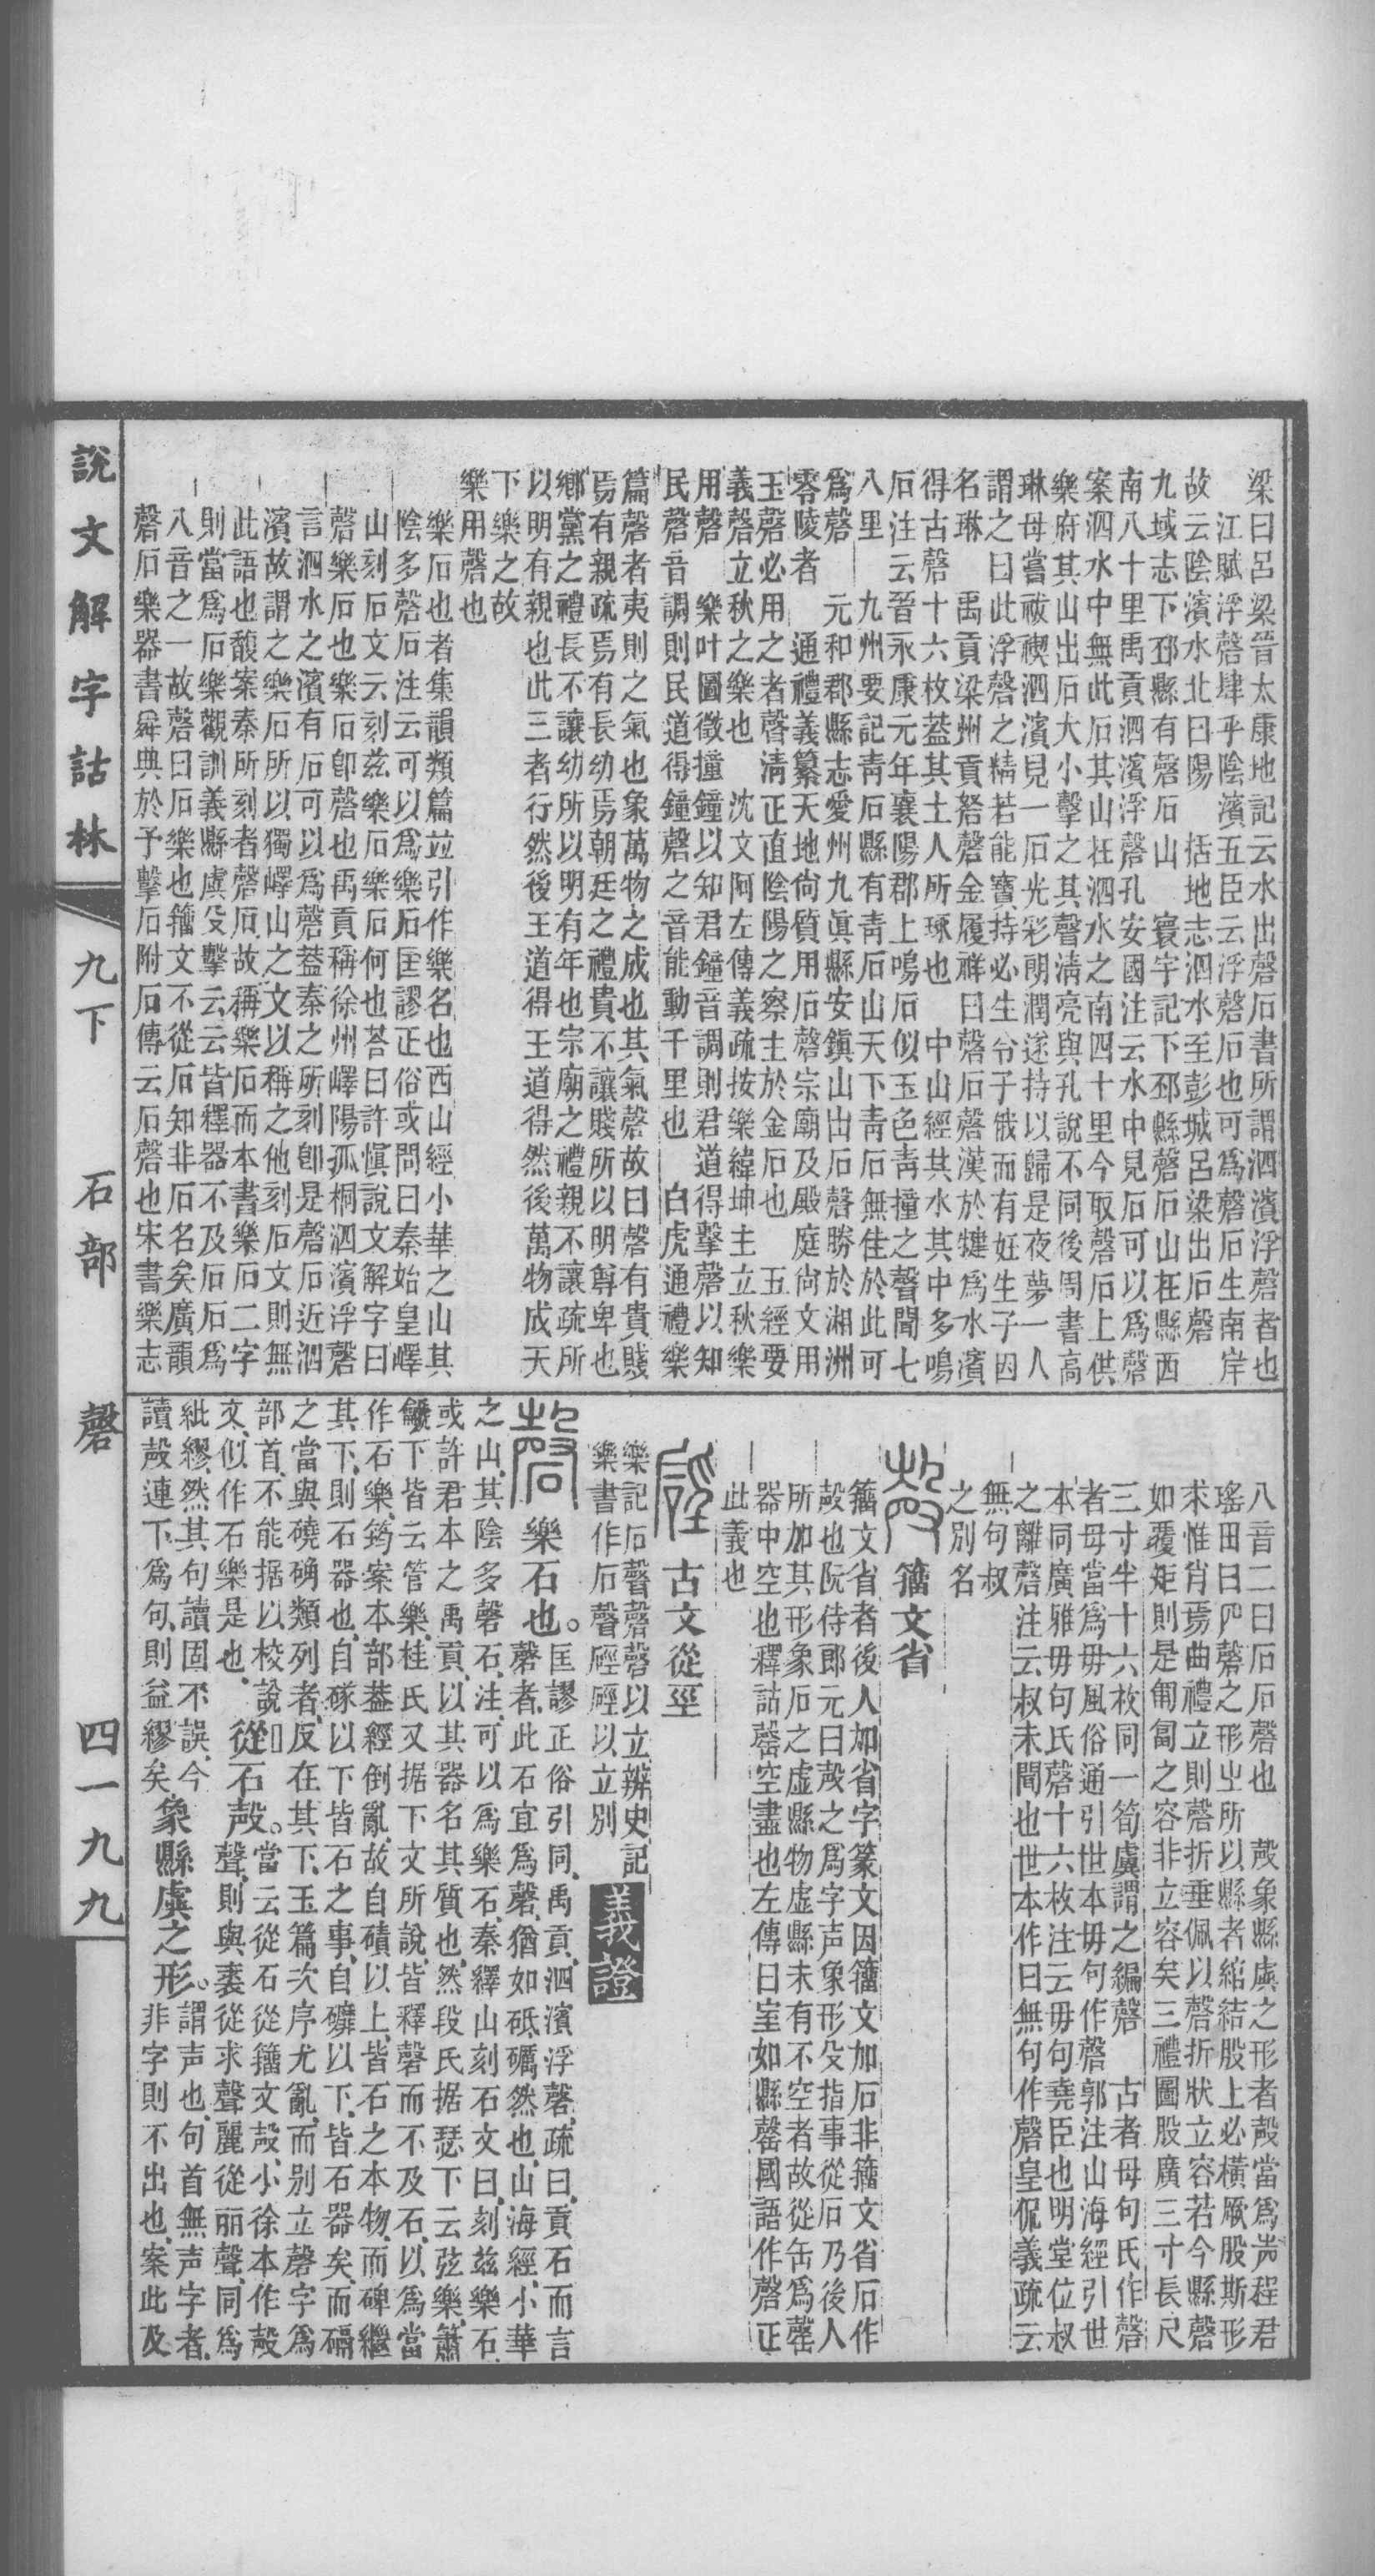 梁曰呂梁晉太康地記云水出磬石書所謂泗濱浮磬者也
江賦浮磬肆乎陰濱五臣云浮磬石也可爲磬石生南岸
故云陰濱水北曰陽　括地志泗水至彭城呂梁出石磬
九域志下邳縣有磬石山　寰宇記下邳縣磬石山在縣西
南八十里禹貢泗濱浮磬孔安國注云水中見石可以爲磬
案泗水中無此石其山在泗水之南四十里今取磬石上供
樂府其山出石大小擊之其聲清亮與孔說不同後周書高
琳母嘗祓禊泗濱見一石光彩朗潤遂持以歸是夜夢一人
謂之曰此浮磬之精若能寶持必生令子俄而有妊生子因
名琳　禹貢梁州貢砮磬金履祥曰磬石磬漢於犍爲水濱
得古磬十六枚蓋其土人所琢也　中山經其水其中多鳴
石注云晉永康元年襄陽郡上鳴石似玉色青撞之聲聞七
八里　九州要記青石縣有青石山天下青石無佳於此可
爲磬　元和郡縣志愛州九眞縣安鎮山出石聲勝於湘洲
零陵者　通禮義纂天地尙質用石磬宗廟及殿庭尙文用
玉磬必用之者磬清正直陰陽之察主於金石也　五經要
義磬立秋之樂也　沈文阿左傳義疏按樂緯坤主立秋樂
用磬　樂叶圖徵撞鐘以知君鐘音調則君道得擊磬以知
民磬音調則民道得鐘磬之音能動千里也　白虎通禮樂
篇磬者夷則之氣也象萬物之成也其氣磬故曰磬有貴賤
焉有親疏焉有長幼焉朝廷之禮貴不讓賤所以明尊卑也
鄉黨之禮長不讓幼所以明有年也宗廟之禮親不讓疏所
以明有親也此三者行然後王道得王道得然後萬物成天
下樂之故
樂用磬也
樂石也者集韻類篇竝引作樂名也西山經小華之山其
陰多磬石注云可以爲樂石匡謬正俗或問曰秦始皇嶧
山刻石文云刻茲樂石樂石何也荅曰許愼說文解字曰
磬樂石也樂石卽磬也禹貢稱徐州嶧陽孤桐泗濱浮磬
言泗水之濱有石可以爲磬蓋秦之所刻卽是磬石近泗
濱故謂之樂石所以獨嶧山之文以稱之他刻石文則無
此語也馥案秦所刻者磬石故稱樂石而本書樂石二字
則當爲石樂觀訓義縣虡殳擊云云皆釋器不及石石爲
八音之一故磬曰石樂也籀文不從石知非石名矣廣韻
磬石樂器書舜典於予擊石附石傳云石磬也宋書樂志
八音二曰石石磬也　殸象縣虡之形者殸當爲声程君
瑤田曰𠃨磬之形㞢所以縣者綰結股上必橫厥股斯形
求惟肖焉曲禮立則磬折垂佩以磬折狀立容若今縣磬
如覆矩則是匍匐之容非立容矣三禮圖股廣三寸長尺
三寸半十六枚同一筍虡謂之編磬　古者母句氏作磬
者母當爲毋風俗通引世本毋句作磬郭注山海經引世
本同廣雅毋句氏磬十六枚注云毋句堯臣也明堂位叔
之離磬注云叔未聞也世本作曰無句作磬皇侃義疏云
無句叔
之別名
籀文省
籀文省者後人加省字篆文因籀文加石非籀文省石作
殸也阮侍郎元曰殸之爲字声象形殳指事從石乃後人
所加其形象石之虛縣物虛縣未有不空者故從缶爲罄
器中空也釋詁罄空盡也左傳曰室如縣罄國語作磬正
此義也
古文從巠
樂記石聲磬磬以立辨史記
樂書作石聲硜硜以立別
義證
樂石也。匡謬正俗引同禹貢泗濱浮磬疏曰貢石而言
磬者此石宜爲磬猶如砥礪然也山海經小華
之山其陰多磬石注可以爲樂石秦繹山刻石文曰刻茲樂石
或許君本之禹貢以其器名其質也然段氏据瑟下云弦樂簫
龤下皆云管樂桂氏又据下文所說皆釋磬而不及石以爲當
作石樂筠案本部葢經倒亂故自磧以上皆石之本物而碑繼
其下則石器也自硺以下皆石之事自礦以下皆石器矣而碻
之當與磽确類列者反在其下玉篇次序尤亂而別立磬字爲
部首不能据以校說文似作石樂是也
從石殸。當云從石從籀文殸小徐本作殸聲則與裘從求聲麗從丽聲同爲
紕繆然其句讀固不誤今讀殸連下爲句則益繆矣
象縣虡之形。謂声也句首無声字者非字則不出也案此及
說文解字詁林　九下　石部　磬　四一九九